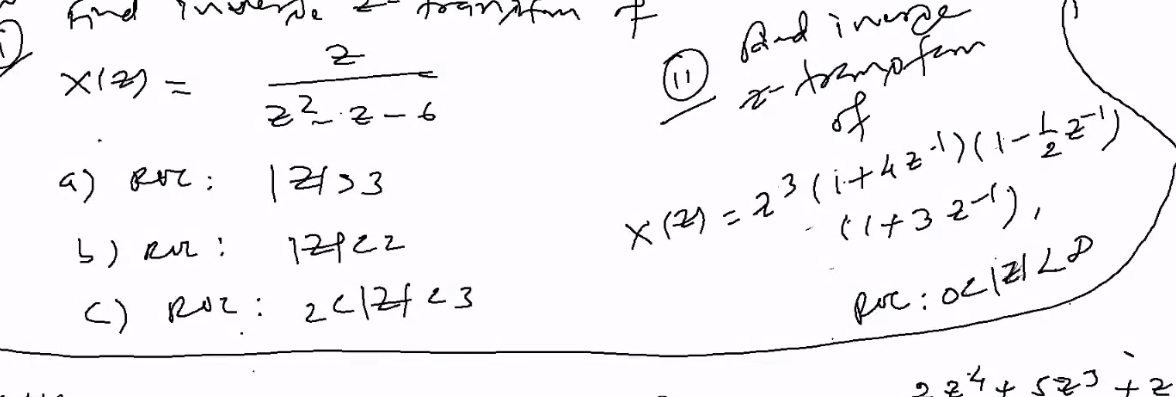 i) Find inverse z-transform of
X(z) = z / (z² - z - 6)
a) ROC: |z| > 3
b) ROC: |z| < 2
c) ROC: 2 < |z| < 3
(ii) Find inverse
z-transform
of
X(z) = z³ (1 + 4z⁻¹)(1 - 1/2 z⁻¹)
(1 + 3z⁻¹),
ROC: 0 < |z| < ∞
2z⁴ + 5z³ + z